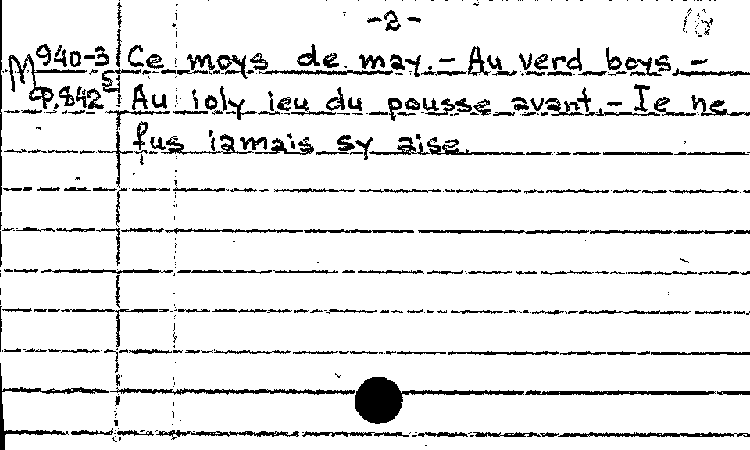 -2-
M 940-3 Ce moys de may.- Au verd boys.-
CP.842 S Au ioly ieu du pousse avant.- Ie ne
fus iamais sy aise.